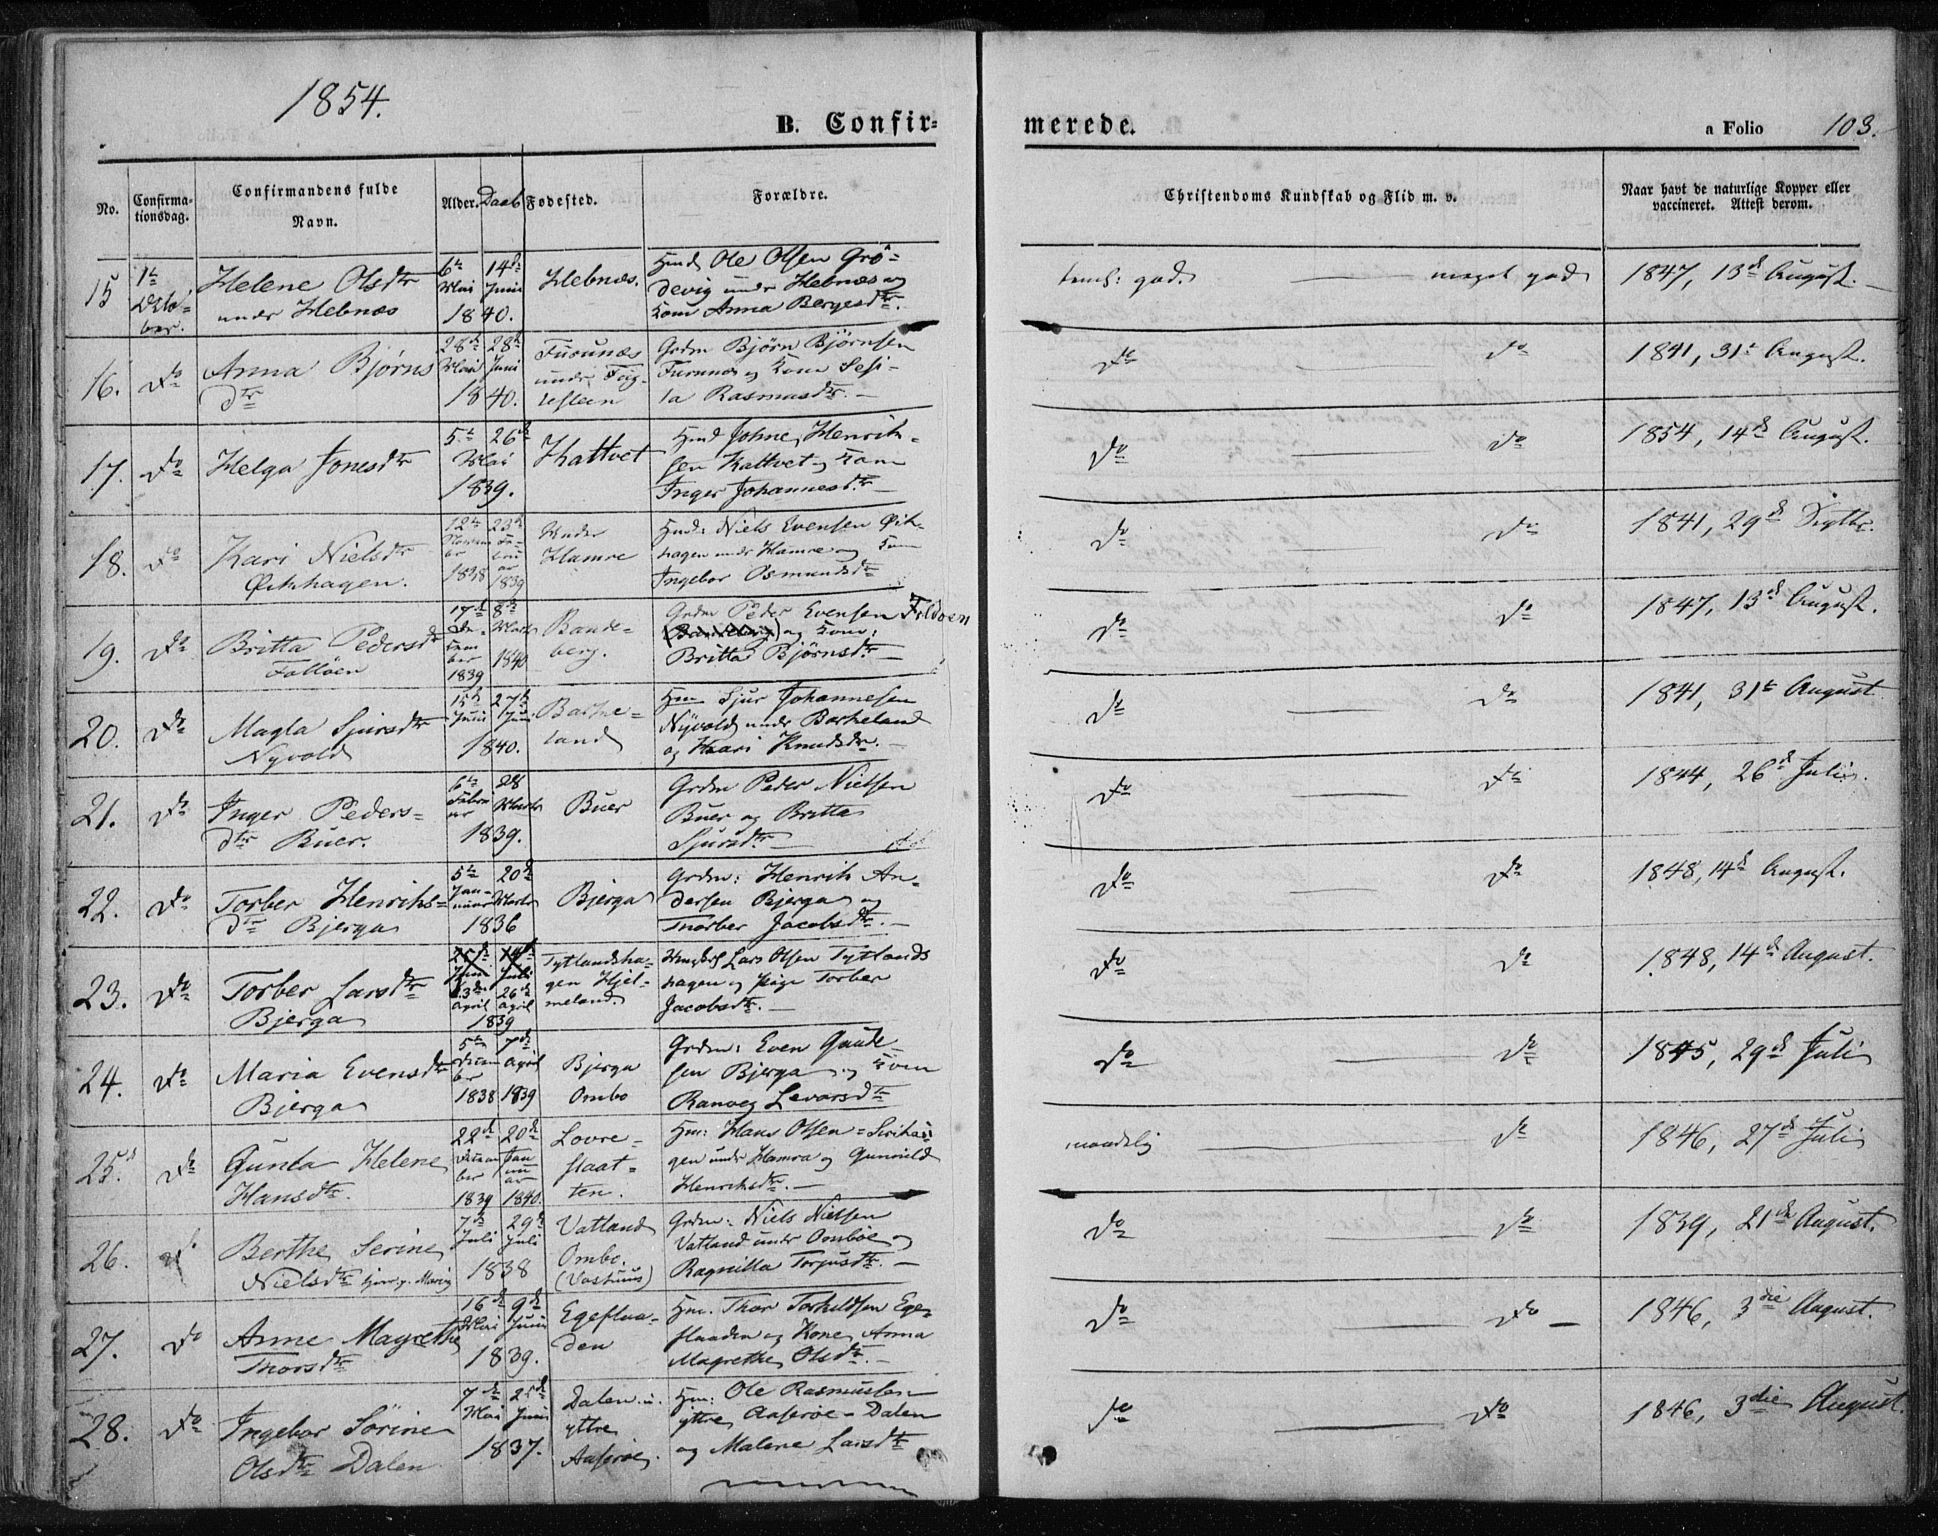 1854.
B. Confir=
merede.
a Folio 103.
No.
Confirma-
tionsdag.
Confirmandens fulde
Navn.
Alder.
Daab
Fødested.
Forældre.
Christendoms Kundskab og Flid m. v.
Naar havt de naturlige Kopper eller
vaccineret. Attest derom.
15
1te
Octo-
ber.
Helene Olsdtr
under Hebnæs
6te Mai
14de Juni
1840.
Hebnæs.
Hmd. Ole Olsen Grö-
devig under Hebnæs og
Kone Anna Bergesdtr.
temel: god.
meget god
1847, 13de August.
16.
Do
Anna Bjørns
dtr
28de Mai
28de Juni
1840.
Furunæs
under
Grdm Bjørn Bjørnsen
Furunæs og Kone Sesi-
la Rasmusdtr.
Do
Do
1841, 31te August.
17.
Do
Helga Jonesdtr
5te
26de
Mai
1839.
Hattvet
Hmd Johne Henrik-
sen Hattvet og Kone
Inger Johannesdtr.
Do
Do
1854, 14de August.
18.
Do
Kari Nielsdtr
Øikhagen.
12te Novem
ber
1838
23de Fe-
bru
ar
1839
Under
Hamre
Hmd: Niels Evensen Øik-
hagen under Hamre og Kone
Ingebor Osmundsdtr
Do
Do
1841, 29de Septbr.
19.
Do
Britta Pedersdtr
Foldöen
17de De-
cem
ber
1839
8de Marts
1840
Bande-
berg.
Grdm Peder Evensen Foldoen
og Kone:
Britta Bjørnsdtr
Do
Do
1847, 13de August.
20.
Do
Magla Sjursdtr
Nyvold
15te Juni
27de Juni
1840.
Barke-
land
Hm Sjur Johannesen
Nyvold under Barkeland
og Kaari Knudsdr.
Do
Do
1841, 31te August
21.
Do
Inger Peders-
dtr Buer.
6te Febru
ar
28 Marts
1839.
Buer
Grdm Peder Nielsen
Buer og Britta
Sjursdtr
Do
Do
1844, 26de Juli.
22.
Do
Torber Henriks-
dtr Bjerga
5te Jan-
uar
20de Marts
1836
Bjerga
Grdm: Henrik An-
dersen Bjerga og
Thorber Jacobsdtr.
Do
Do
1848, 14de August.
23.
Do
Torber Larsdtr
Bjerga
13de April
26de April
1839
Tytlandsha-
gen Hjel-
meland.
Lars Olsen Tytlands
hagen og Pige Torber
Jacobsdtr.
Do
Do
1848, 14de August.
24.
Do
Maria Evensdtr
Bjerga
5te Decem
ber
1838
7de April
1839
Bjerga
Ombo
Grdm: Even Gaute-
sen Bjerga og Kone
Ranveg Levarsdtr
Do
Do
1845, 29de Juli
25
Do
Gunla Helene
Hansdtr.
22de Decem
ber
1839
20de Jan
nu
ar
1840.
Lovre-
slaat-
ten.
Hm: Hans Olsen
gen under Hamra og Gunvild
Henriksdtr.
maadelig
Do
1846, 27de Juli
26.
Do
Berthe Serine
Nielsdtr
7de Juli
29de Juli
1838
Vatland
Ombo.
(Vashuus)
Grdm: Niels Nielsen
Vatland under Omböe og
Ragnilla Torjusdtr.
Do
Do
1839, 21de August.
27.
Do
Anne Magrethe
Thorsdtr
16de Mai
9de Juni
1839.
Egeflaa-
den
Hm. Thor Torkildsen Ege-
flaaden og Kone Anna
Magrethe Olsdtr.
Do
Do
1846, 3die August.
28.
Do
Ingebor Sörine
Olsdtr Dalen
7de Mai
25de Juni
1837.
Dalen u.
yttre
Hm: Ole Rasmussen
yttre Dalen
og Malene Larsdtr
Do
Do
1846, 3die August.